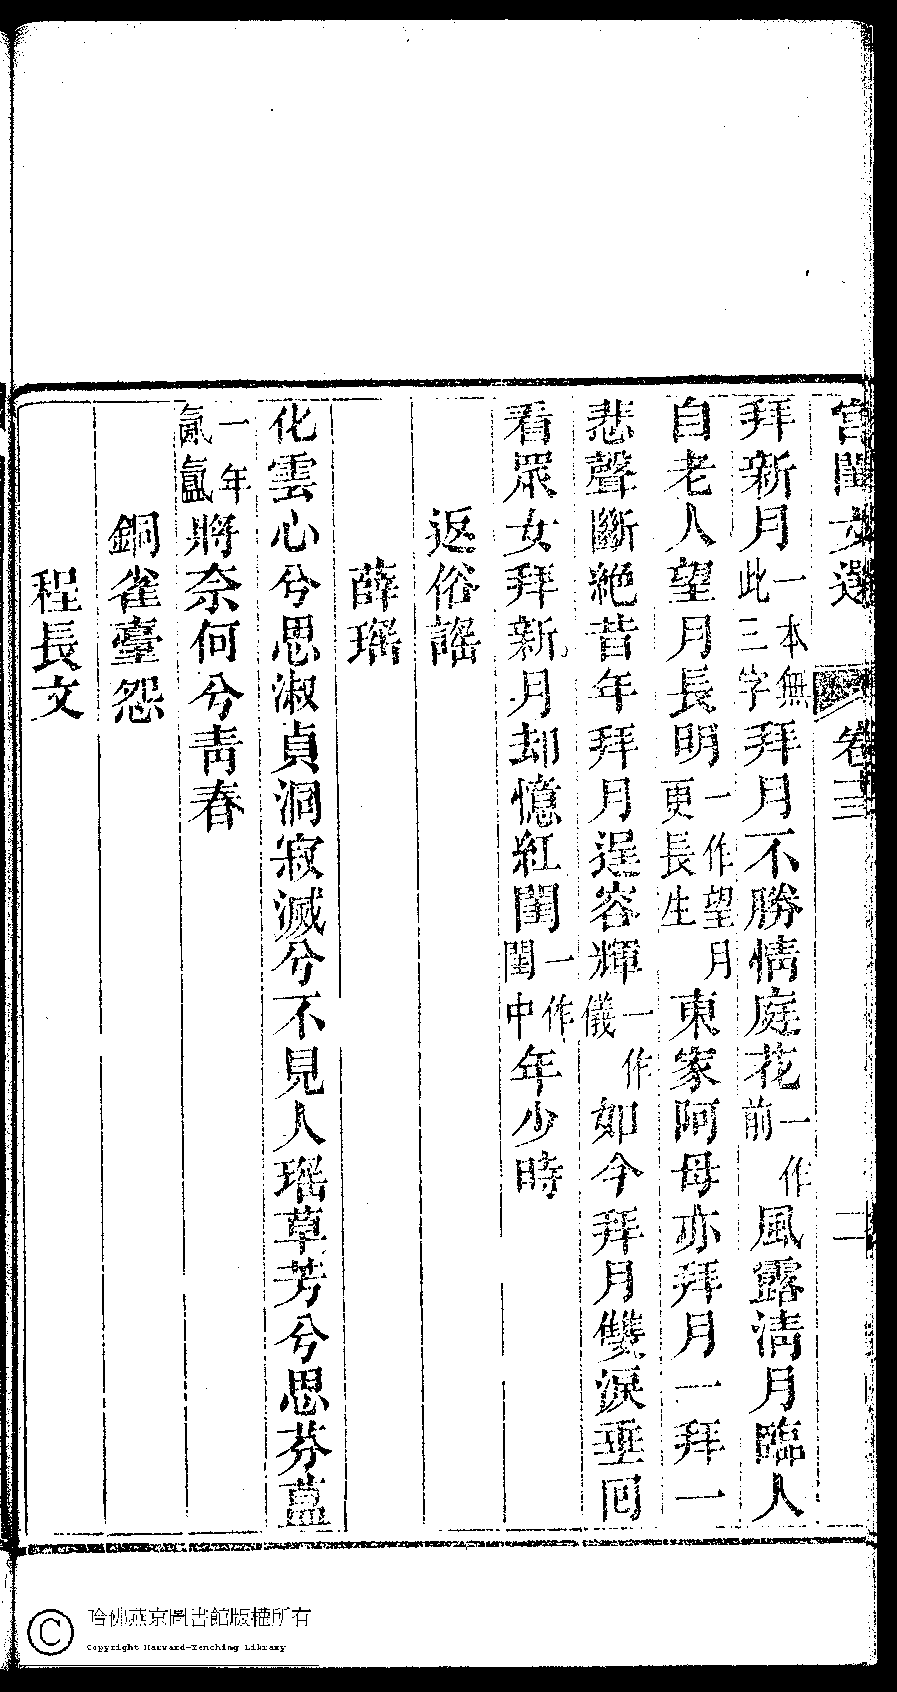 宮閨文選 卷 二
拜新月一本無此三字拜月不勝情庭花一作前風露清月臨人
自老人望月長明一作望月更長生東家阿母亦拜月一拜一
悲聲斷絕昔年拜月逞容輝一作儀如今拜月雙淚垂回
看眾女拜新月却憶紅閨一作閨中年少時
返俗謠
薛瑤
化雲心兮思淑貞洞寂滅兮不見人瑤草芳兮思芬蒀
一年氤氳將奈何兮青春
銅雀臺怨
程長文
哈佛燕京圖書館版權所有
Copyright Harvard-Yenching Library